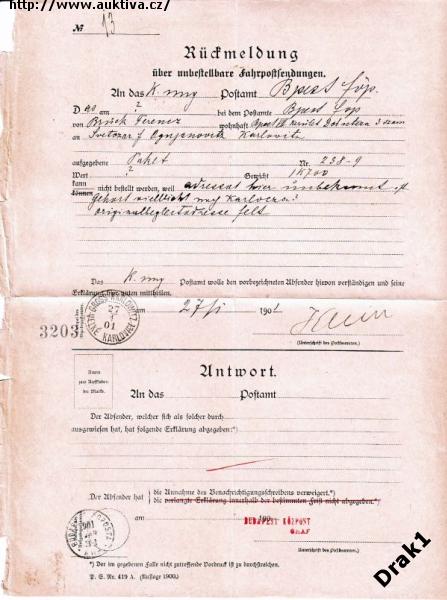 Zdroj: www.auktiva.cz
№ 13
Rückmeldung
über unbestellbare Fahrpostsendungen.
An das K. ung Postamt Bpest főp.
Das am ? bei dem Postamte Bpest főp
von Ferencz wohnhaft Bpest
an Svetozar f Ognjanovits Karlovitz
aufgegebene Paket Nr. 238-9
Wert ? Gewicht 1K700
kann
können nicht bestellt werden, weil adressat hier unbekannt ist
gehört vielleicht nach
originalbegleitadresse felt
Das K. ung Postamt wolle den vorbezeichneten Absender hievon verständigen und seine
Erklärung hier unten mittheilen.
am 27/5 1901
3203
KARLOVEY
(Unterschrift des Postbeamten.)
Antwort.
Raum
zur Aufklebung
der Marke.
An das Postamt
Der Absender, welcher sich als solcher durch
ausgewiesen hat, hat folgende Erklärung abgegeben:*)
Der Absender hat
die Annahme des Benachrichtigungsschreibens verweigert.*)
die verlangte Erklärung innerhalb der bestimmten Frist nicht abgegeben.*)
am 190
BUDAPEST KÖZPONT
(Unterschrift des Postbeamten.)
*) Der im gegebenen Falle nicht zutreffende Vordruck ist zu durchstreichen.
P. S. Nr. 419 A. (Auflage 1900.)
Drak1